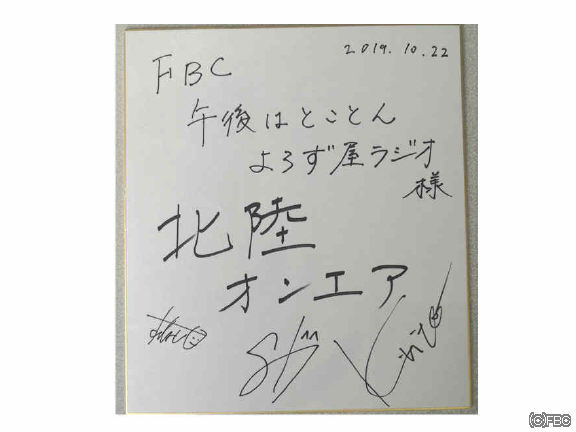 2019.10.22
FBC
午後はとことん
よろず屋ラジオ
様
北陸
オンエア
(C)FBC